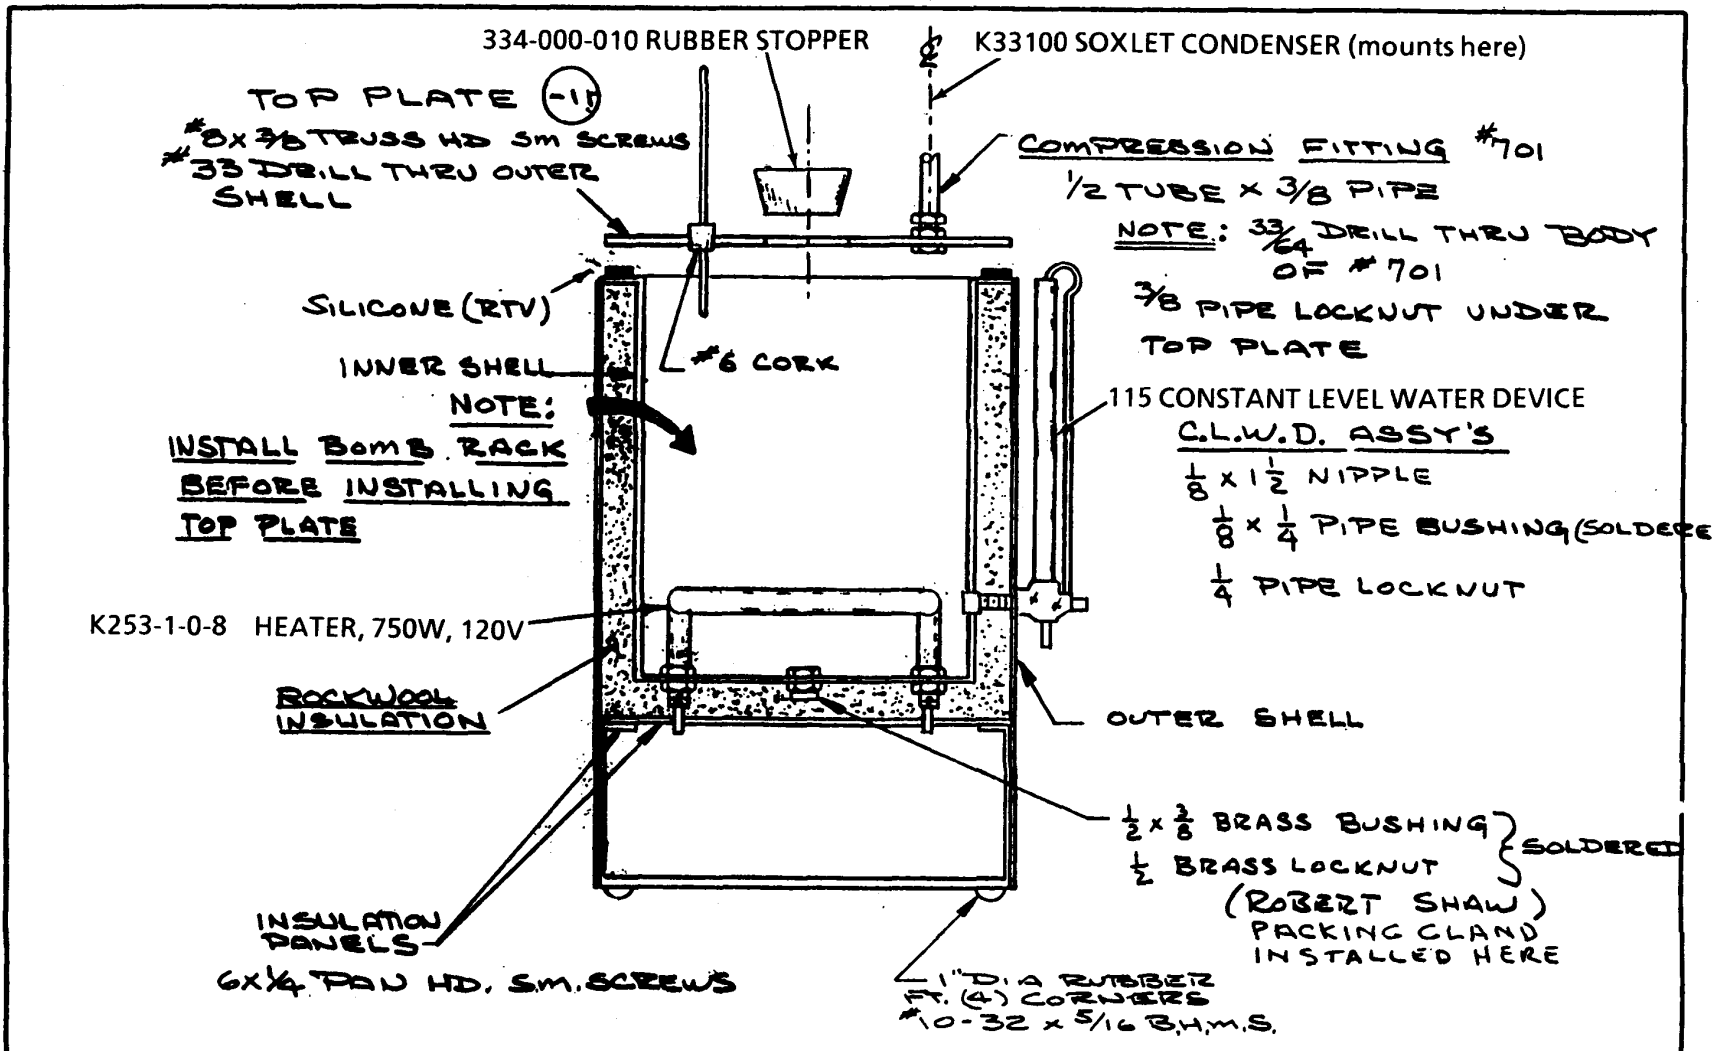 334-000-010 RUBBER STOPPER
K33100 SOXLET CONDENSER (mounts here)
TOP PLATE
#8 x 3/8 TRUSS HD SM SCREWS
#33 DRILL THRU OUTER
SHELL
COMPRESSION FITTING #701
1/2 TUBE x 3/8 PIPE
NOTE: 33/64 DRILL THRU BODY
OF #701
3/8 PIPE LOCKNUT UNDER
TOP PLATE
SILICONE (RTV)
INNER SHELL
#6 CORK
NOTE:
INSTALL BOMB RACK
BEFORE INSTALLING
TOP PLATE
115 CONSTANT LEVEL WATER DEVICE
C.L.W.D. ASSY'S
1/8 x 1 1/2 NIPPLE
1/8 x 1/4 PIPE BUSHING (SOLDERE
1/4 PIPE LOCKNUT
K253-1-0-8 HEATER, 750W, 120V
ROCKWOOL
INSULATION
OUTER SHELL
1/2 x 3/8 BRASS BUSHING
1/2 BRASS LOCKNUT
SOLDERED
(ROBERT SHAW)
PACKING GLAND
INSTALLED HERE
INSULATION
PANELS
6x1/4 PAN HD. S.M. SCREWS
1" DIA RUBBER
FT. (4) CORNERS
#10-32 x 5/16 B.H.M.S.